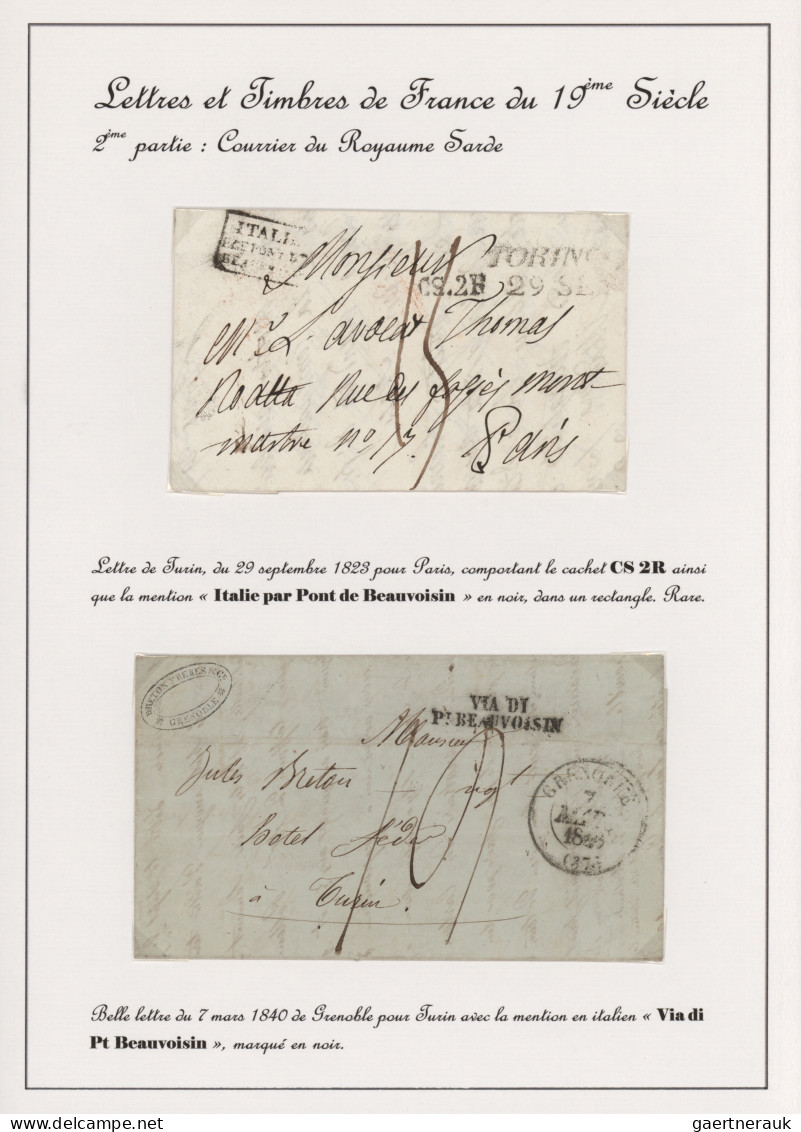 Lettres et Timbres de France du 19ème Siècle
2ème partie : Courrier du Royaume Sarde
ITALI
PONT
TORINO
CS.2R 29 SE
Monsieur
Mr L'avocat Thomas
Rue des fossés mont
martre no 17. Paris
Lettre de Turin, du 29 septembre 1823 pour Paris, comportant le cachet CS 2R ainsi
que la mention « Italie par Pont de Beauvoisin » en noir, dans un rectangle. Rare.
BRETON FRERES & CE
GRENOBLE
VIA DI
PT BEAUVOISIN
Monsieur
Jules Breton
hotel
à Turin.
GRENOBLE
7
(37)
Belle lettre du 7 mars 1840 de Grenoble pour Turin avec la mention en italien « Via di
Pt Beauvoisin », marqué en noir.
gaertnerauk